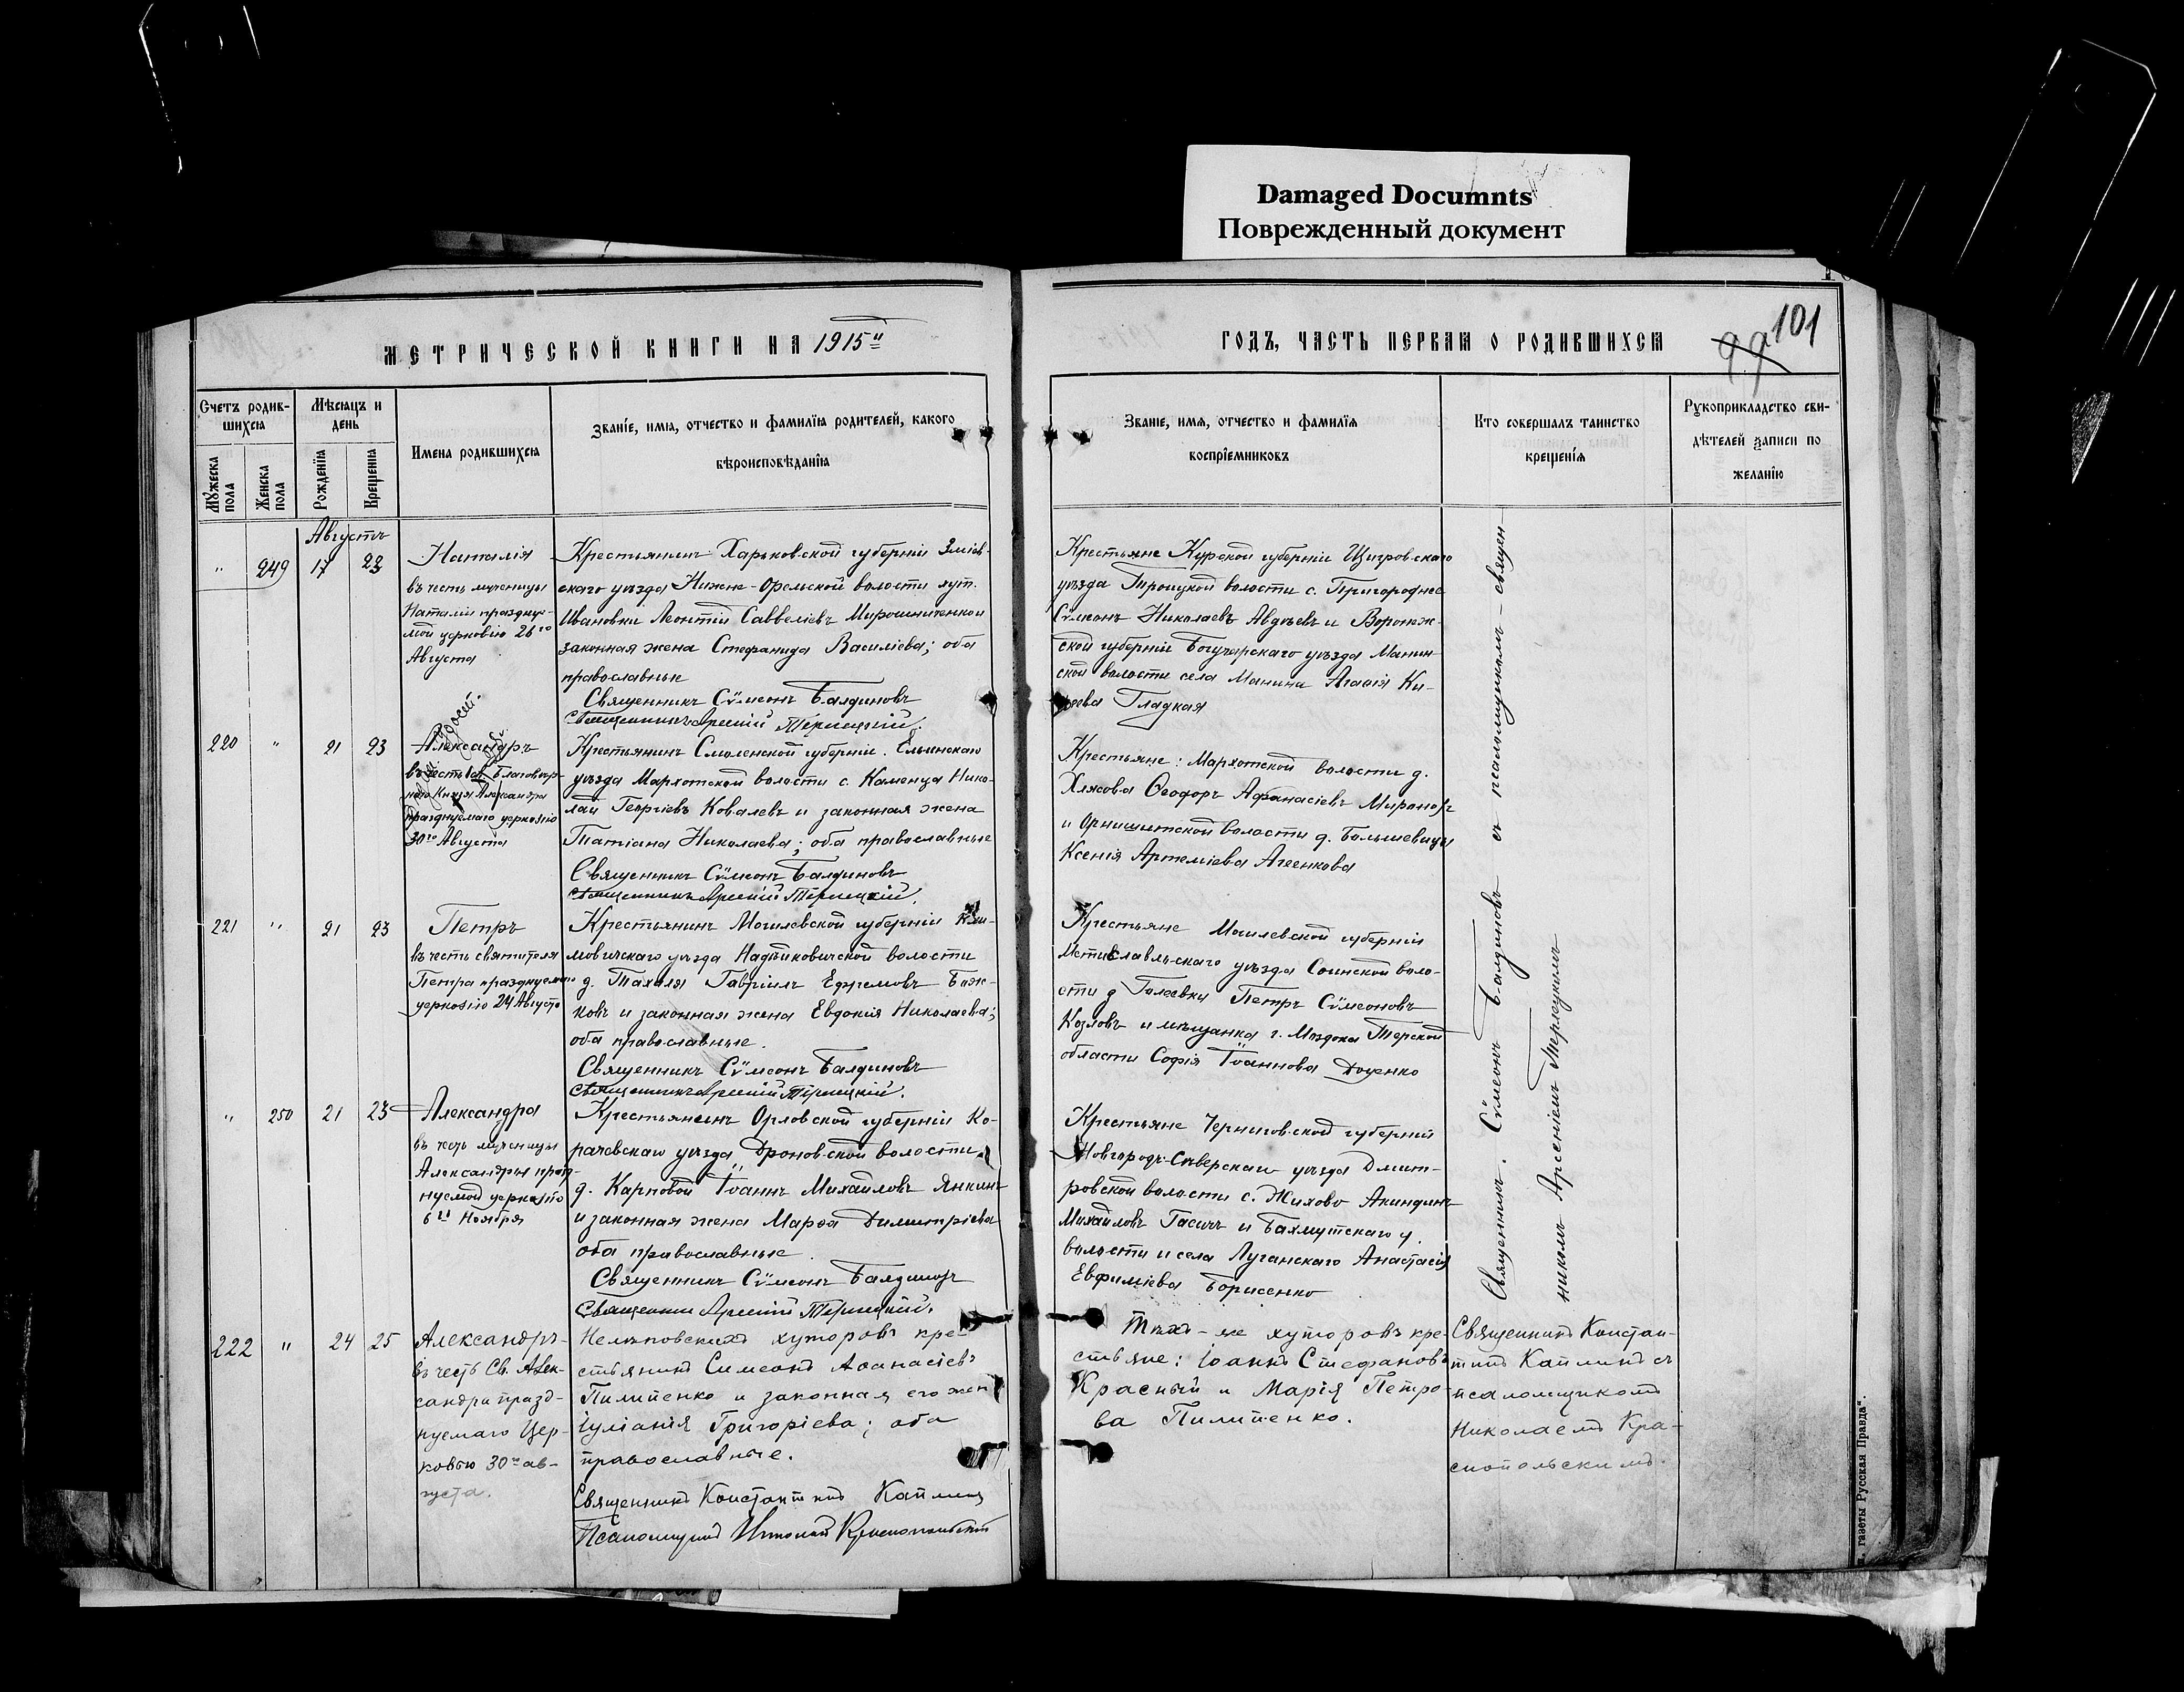 Damaged Documnts
Поврежденный документ
МЕТРИЧЕСКОЙ КНИГИ НА 1915й
ГОДЪ, ЧАСТЬ ПЕРВАЯ О РОДИВШИХСЯ
99 101
Счетъ родив-
шихся
Мужеска пола
Женска пола
Мѣсяцъ и день
Рожденія
Крещенія
Имена родившихся
Званіе, имя, отчество и фамилія родителей, какого
вѣроисповѣданія
Званіе, имя, отчество и фамилія
воспріемниковъ
Кто совершалъ таинство
крещенія
Рукоприкладство сви-
дѣтелей записи по
желанію
Августъ
" 249 17 23
Наталія
въ честь мученицы
Наталіи праздну-
мой церковію 26го
Августа
Крестьянинъ Харьковской губерніи Зміев-
скаго уѣзда Нижне-Орельской волости хут.
Ивановки Леонтій Саввеліевъ Мирошниченко и
законная жена Стефанида Василіева; оба
православные
Священникъ Сѵмеонъ Балдиновъ
Крестьяне Курской губерніи Щигровскаго
уѣзда Троицкой волости с. Пригороднее
Сѵмеонъ Николаевъ Авдѣевъ и Воронеж-
ской губерніи Богучарскаго уѣзда Манин-
ской волости села Манины Агафія Ки-
Гладкая
220 " 21 23
Александръ
въ честь Св. Благовѣр-
наго Князя Александра
празднуемаго церковію
30го Августа
Крестьянинъ Смоленской губерніи Ельнинскаго
уѣзда Мархоткой волости с. Каменца Нико-
лай Георгіевъ Ковалевъ и законная жена
Татіана Николаева; оба православные
Священникъ Сѵмеонъ Балдиновъ
Крестьяне: Мархотской волости д.
Хлясова Ѳеодоръ Афанасіевъ Мироновъ
и волости д. Большевицы
Ксенія Артеміева Агеенкова
221 " 21 23
Петръ
въ честь святителя
Петра празднуемаго
церковію 24 Августа
Крестьянинъ Могилевской губерніи Кли-
мовичскаго уѣзда Надѣйковичской волости
д. Гавріилъ Ефремовъ Баж-
ковъ и законная жена Евдокія Николаева;
оба православные.
Священникъ Сѵмеонъ Балдиновъ
Крестьяне Могилевской губерніи
Мстиславльскаго уѣзда Соинской воло-
сти д. Галеевки Петръ Сѵмеоновъ
Козловъ и мѣщанка г. Моздока Терской
области Софія Іоаннова Доценко
" 250 21 23
Александра
въ честь мученицы
Александры празд-
нуемой церковію
6го Ноября
Крестьянинъ Орловской губерніи Ка-
рачевскаго уѣзда Дроновской волости
д. Карповой Іоаннъ Михайловъ Янкинъ
и законная жена Марѳа Димитріева
оба православные
Священникъ Сѵмеонъ Балдиновъ
Крестьяне Черниговской губерніи
Новгородъ-Сѣверскаго уѣзда Дмит-
ровской волости с. Жихово Акиндинъ
Михайловъ Гасичъ и Бахмутскаго у.
волости и села Луганскаго Анастасія
Евфиміева Борисенко
Священникъ Сѵмеонъ Балдиновъ съ псаломщикомъ-священ
никомъ Арсеніемъ
222 " 24 25
Александръ-
въ честь Св. Алек-
сандра празд-
нуемаго Цер-
ковью 30го ав-
густа.
Нелѣповскихъ хуторовъ кре-
стьянинъ Симеонъ Аѳанасіевъ
Пилипенко и законная его жена
Іуліанія Григоріева; оба
православные.
Священникъ Константинъ Каплинъ
Псаломщикъ Николай Краснопольскій
Тѣхъ-же хуторовъ кре-
стьяне: Іоаннъ Стефановъ
Красный и Марія Петро-
ва Пилипенко.
Священникъ Констан-
тинъ Каплинъ съ
псаломщикомъ
Николаемъ Кра-
снопольскимъ.
газеты Русская Правда".